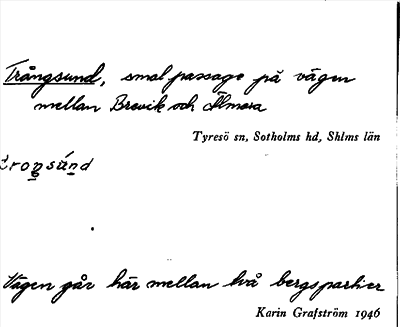 Trångsund, smal passage på vägen
mellan Brevik och Ålmora
Tyresö sn, Sotholms hd, Shlms län
troṉsúṉd
Vägen går här mellan två bergspartier
Karin Grafström 1946